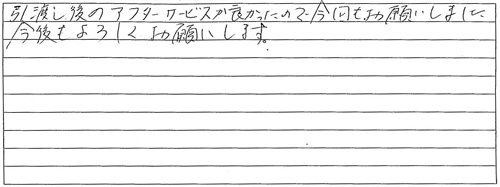 引渡し後のアフターサービスが良かったので今回もお願いしました
今後もよろしくお願いします。